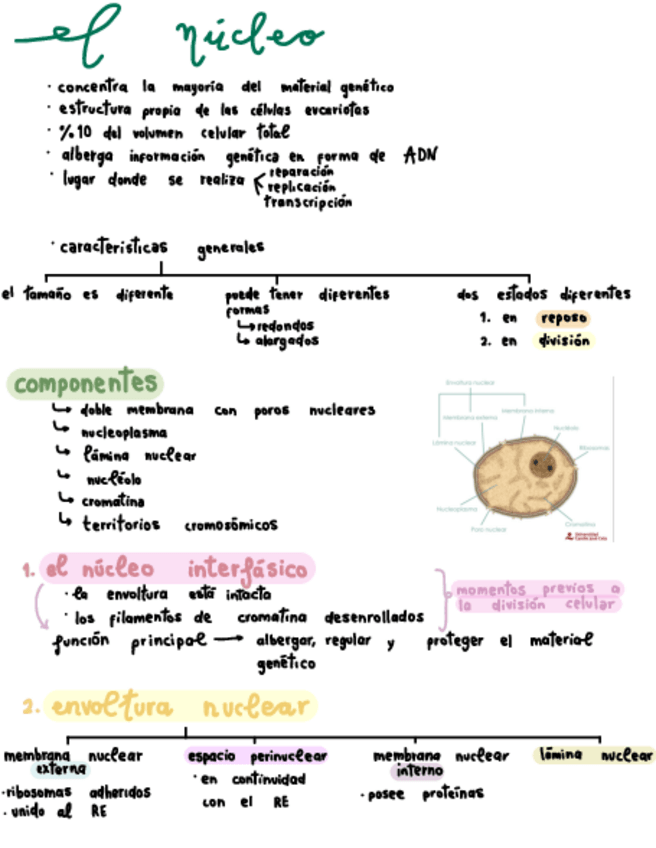 el núcleo
· concentra la mayoría del material genético
· estructura propia de las células eucariotas
· %10 del volumen celular total
· alberga información genética en forma de ADN
· lugar donde se realiza
reparación
replicación
transcripción
· características generales
el tamaño es diferente
puede tener diferentes
formas
↳ redondos
↳ alargados
dos estados diferentes
1. en reposo
2. en división
componentes
↳ doble membrana con poros nucleares
↳ nucleoplasma
↳ lámina nuclear
↳ nucléolo
↳ cromatina
↳ territorios cromosómicos
Envoltura nuclear
Membrana externa
Membrana interna
Lámina nuclear
Nucléolo
Ribosomas
Nucleoplasma
Poro nuclear
Cromatina
Universidad
Camilo José Cela
1. el núcleo interfásico
· la envoltura está intacta
· los filamentos de cromatina desenrollados
momentos previos a
la división celular
función principal → albergar, regular y proteger el material
genético
2. envoltura nuclear
membrana nuclear
externa
· ribosomas adheridos
· unido al RE
espacio perinuclear
· en continuidad
con el RE
membrana nuclear
interno
· posee proteínas
lámina nuclear